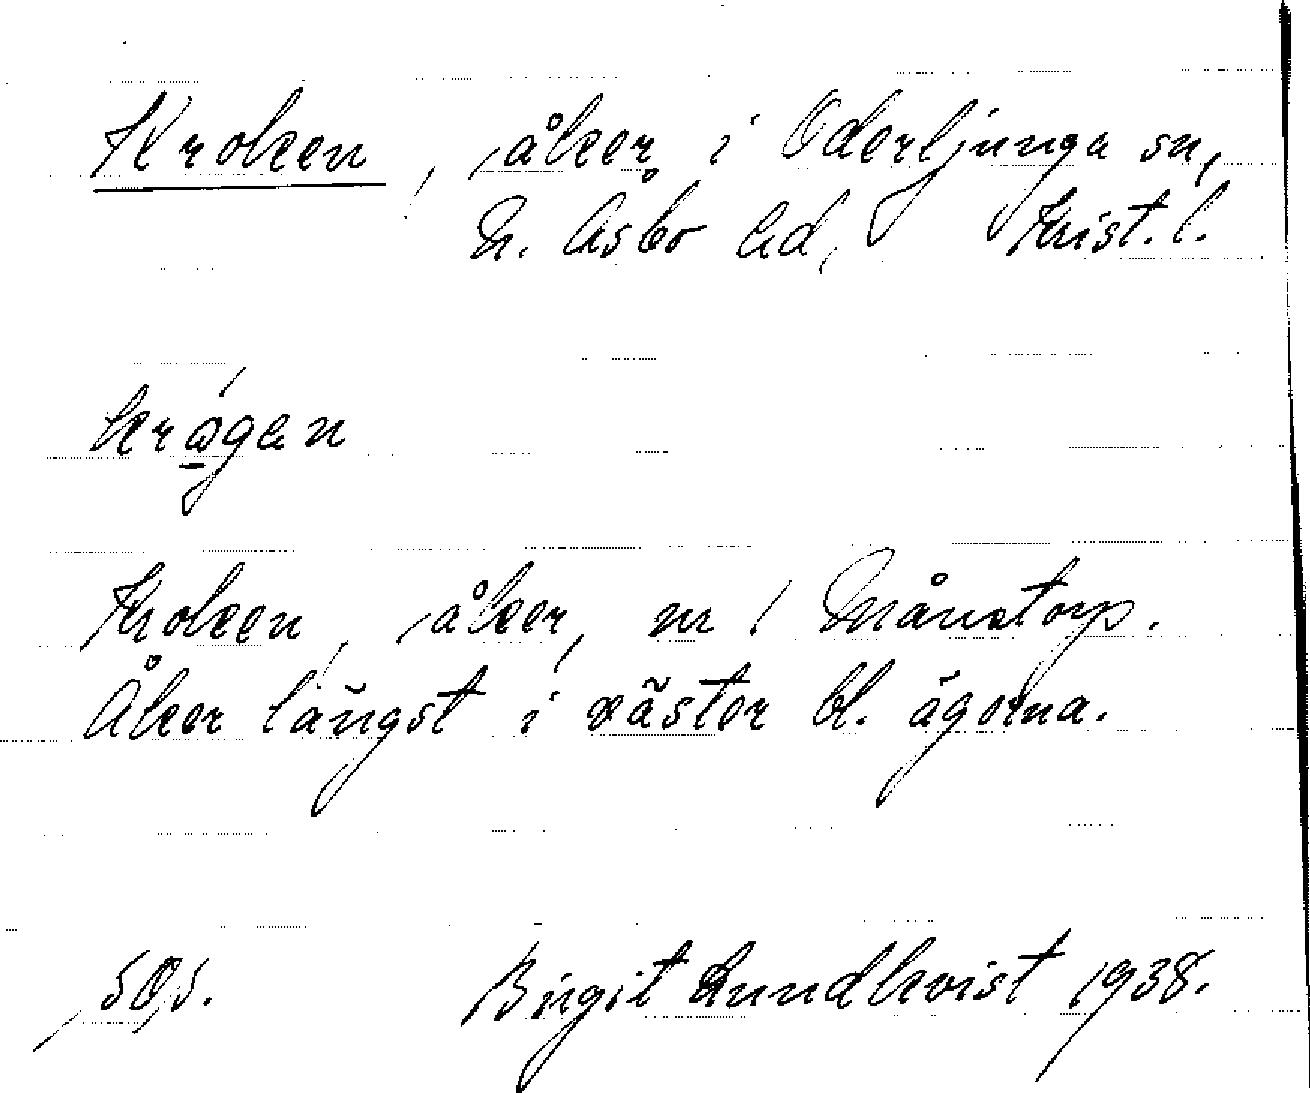 Kroken, åker i Oderljunga sn,
N. Åsbo hd, Krist. l.
krǫ́gan
Kroken, åker, nr 1 Månstorp.
Åker längst i väster bl. ägorna.
Birgit Lundkvist 1938.